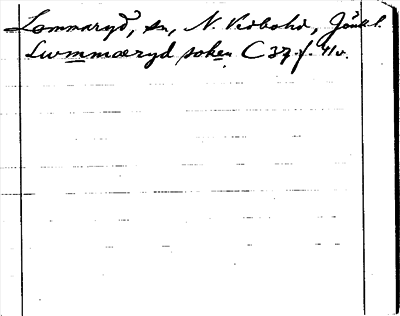 Lommaryd, sn, N. Vedbohd, Jönk l.
Lwmmæryd soken C 37 f. 41v.